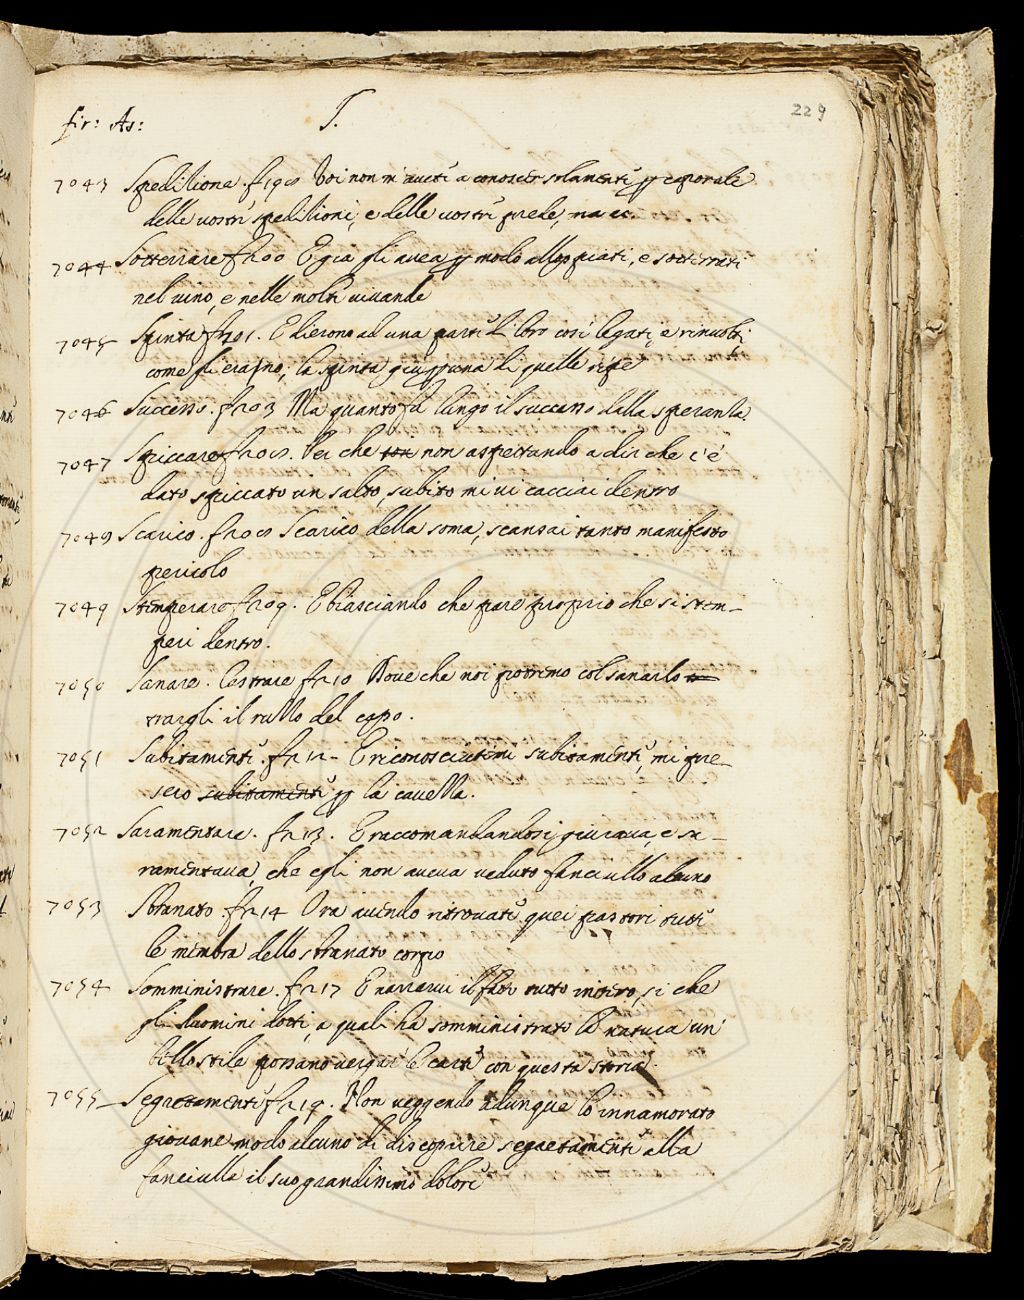 fir: As:
S.
229
7043 Speditione. fir. 198 Voi non m'aveti a conoscer solamenti p caporale
delle vostri speditioni, e delle vostri prede, ma ec.
7044 Sotterrare fir 200 E gia gli avea p modo alloppiati, e sotterrati
nel vino, e nelle molti vivande
7045 Spinta fir 201. E dierono ad una parti di loro così legati, e rinvolti
come si erano, la spinta giu p una di quelle ripe
7046 Successo. fir 203 Ma quanto fu lungo il successo dalla speranza
7047 Spiccare fir 205. Per che non aspettando a dir che c'è
dato spiccato un salto, subito mi vi cacciai dentro
7049 Scarico. fir 208 Scarico della soma, scansai tanto manifesto
pericolo
7049 Stemperare fir 209. E biasciando che pare proprio che si stem-
peri dentro.
7050 Sanare. Castrare fir 210 Dove che noi potremo col sanarlo
trargli il ruzzo del capo.
7051 Subitamenti. fir 212- E riconosciutomi subitamenti, mi pre-
sero subitamenti p la cavezza.
7052 Saramentare. fir 213. E raccomandandosi, giurava, e sa-
ramentava, che egli non aveva veduto fanciullo alcuno
7053 Sbranato. fir 214 Ora avendo ritrovati quei pastori tutti
le membra dello sbranato corpo
7054 Somministrare. fir 217 E narrarvi il fatto tutto intero, si che
gli huomini dotti, a quali ha somministrato la natura un
bello stile possano vergar le carti con questa storia.
7055 Segretamenti fir 219. Non veggendo adunque lo innamorato
giovane modo alcuno di discoprire segretamenti alla
fanciulla il suo grandissimo dolori